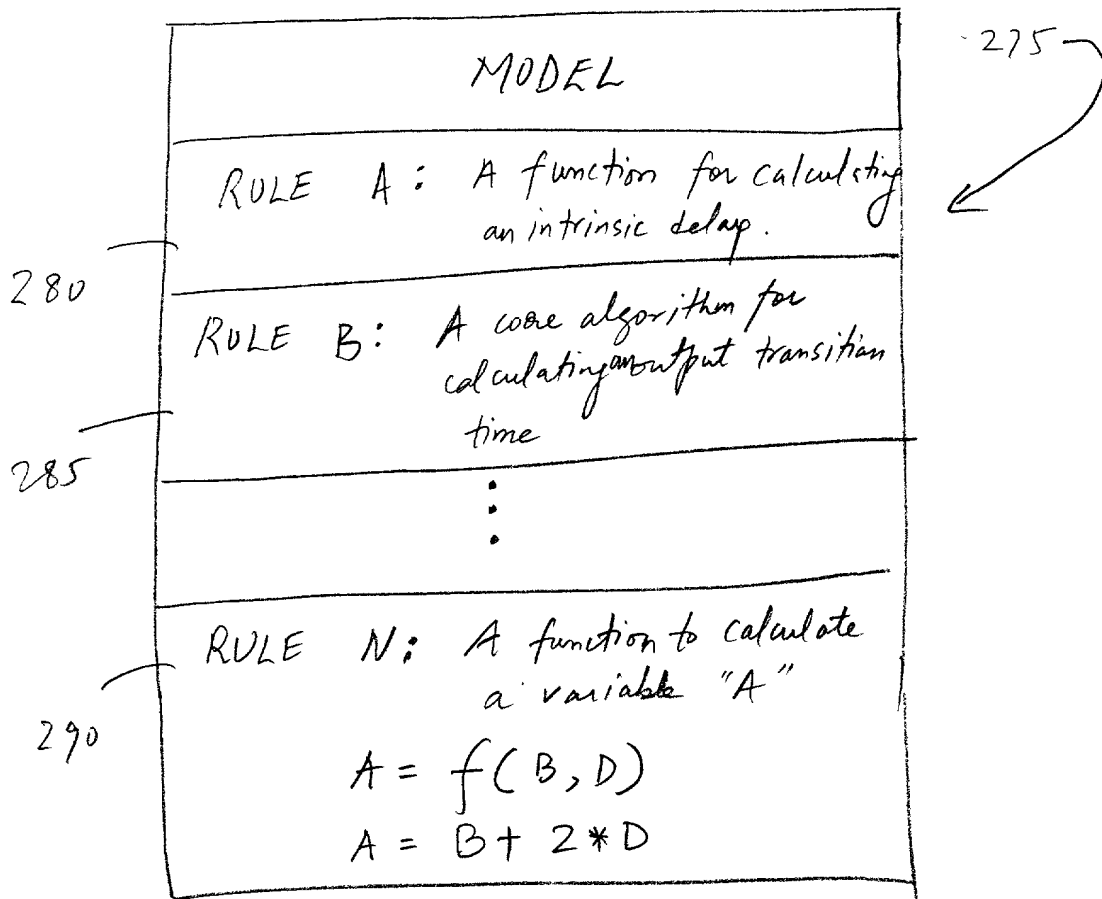 MODEL
275
RULE A: A function for calculating
an intrinsic delay.
280
RULE B: A core algorithm for
calculating an output transition
time
285
RULE N: A function to calculate
a variable "A"
290
A = f(B, D)
A = B + 2 * D